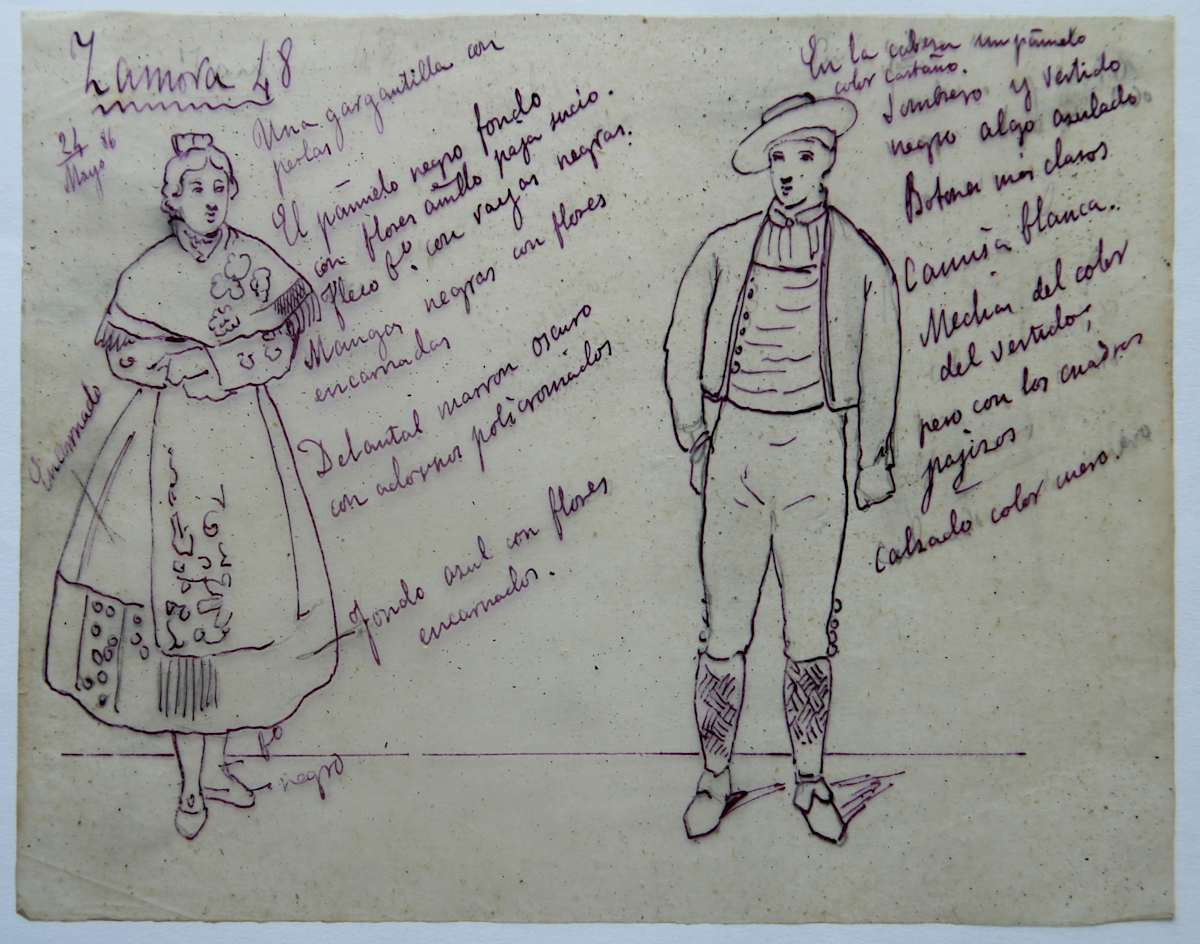 Zamora 48
24 Mayo 86
Una gargantilla con
perlas
El pañuelo negro fondo
con flores amllo paja sucio.
fleco bº con rayas negras.
Mangas negras con flores
encarnadas
Encarnado
Delantal marron oscuro
con adornos policromados
fondo azul con flores
encarnados.
bº
negro
En la cabeza un pañuelo
color castaño.
Sombrero y vestido
negro algo azulado
Botones más claros
Camisa blanca.
Medias del color
del vestido,
pero con los cuadros
pajizos
Calzado color cuero